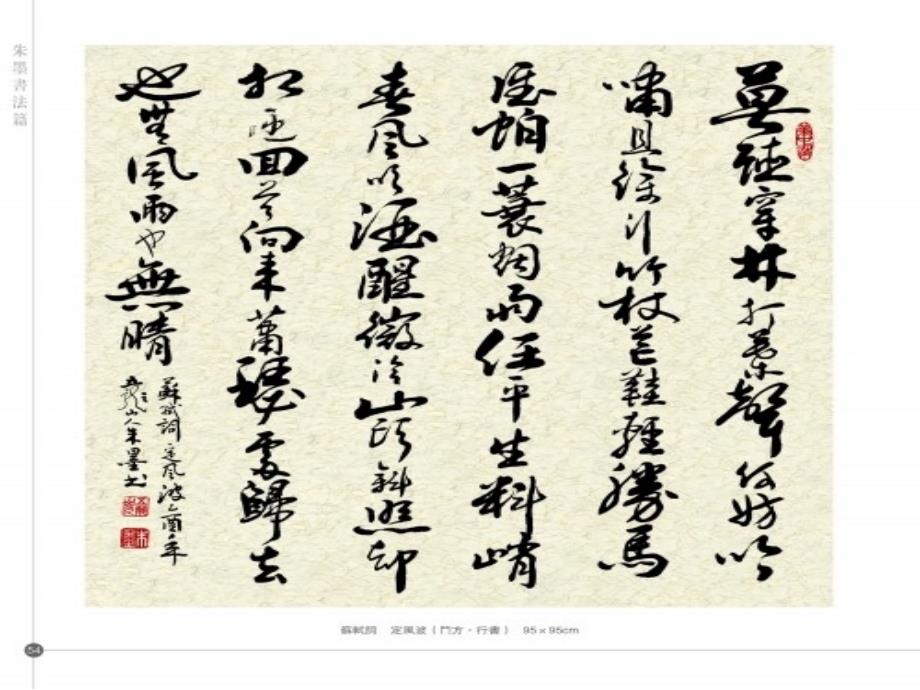 朱墨書法篇
莫聽穿林打葉聲何妨吟
嘯且徐行竹杖芒鞋輕勝馬
誰怕一蓑烟雨任平生料峭
春風吹酒醒微冷山頭斜照却
相迎回首向來蕭瑟處歸去
也無風雨也無晴
蘇軾詞定風波乙酉年
龍山人朱墨书
蘇軾詞 定風波（鬥方·行書） 95×95cm
54